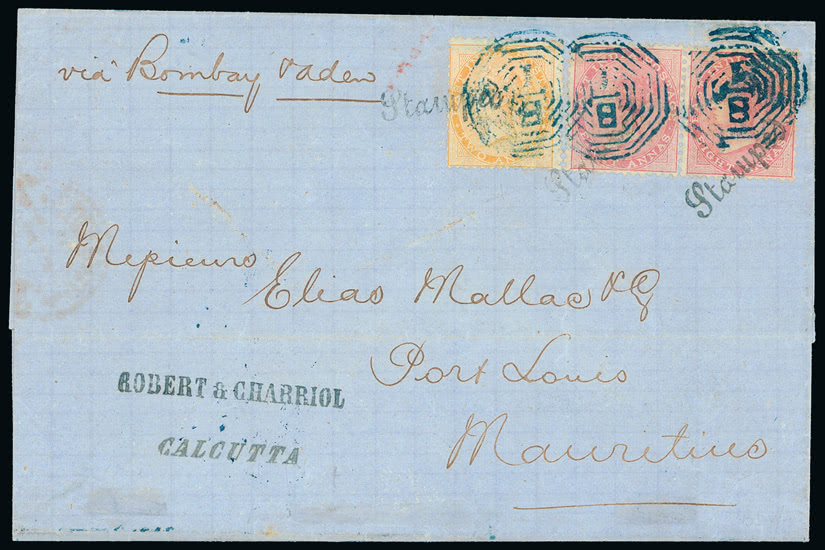 via Bombay & Aden
Stamped
1
B
TWO ANN
Sta
1
B
ANNAS
Stamped
1
B
IGHT ANNAS
Messieurs
Elias Mallac & Co
Port Louis
Mauritius
ROBERT & CHARRIOL
CALCUTTA